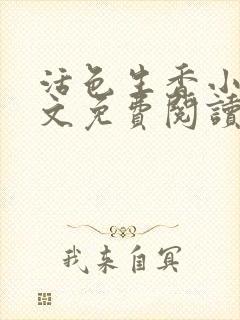 活色生香小
文免費閱讀
我来自冥